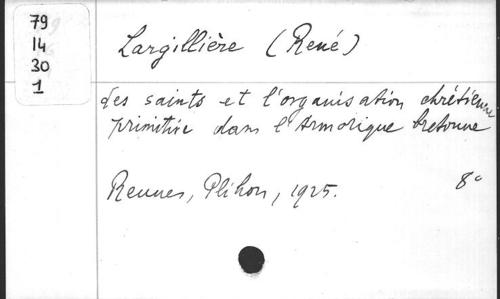 79
14
30
1
Largillière (René)
Les saints et l'organisation chrétienne
primitive dans l'Armorique bretonne
Rennes, Plihon, 1925.
8°